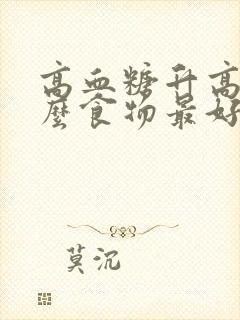 高血糖升高
麼食物最好
莫沉